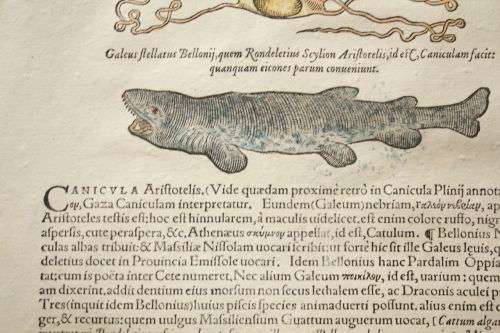 Galeus stellatus Bellonij, quem Rondeletius Scylion Aristotelis, id est, Caniculam facit:
quanquam eicones parum conueniunt.
CANICVLA Aristotelis. (Vide quædam proximè retrò in Canicula Plinij annot
Gaza Caniculam interpretatur. Eundem (Galeum) nebriam,
Aristoteles testis est: hoc est hinnularem, à maculis uidelicet. est enim colore ruffo, nig
aspersis, cute peraspera, &c, Athenæus σκύμνον appellat, id est, Catulum. ¶ Bellonius N
culas albas tribuit: & Massiliæ Nissolam uocari scribit: ut fortè hic sit ille Galeus leuis, q
deletius docet in Prouincia Emissole uocari. Idem Bellonius hanc Pardalim Oppia
tat; cum is poëta inter Cete numeret, Nec alium Galeum ποικίλον, id est, uarium: quem
am dixerint. addit dentium eius morsum non secus lethalem esse, ac Draconis aculei p
Tres (inquit idem Bellonius) huius piscis species animaduerti possunt. alius enim est
ger, & recurtus: quem uulgus Massiliensium Guattum auguerum uocat, [Cattum algar